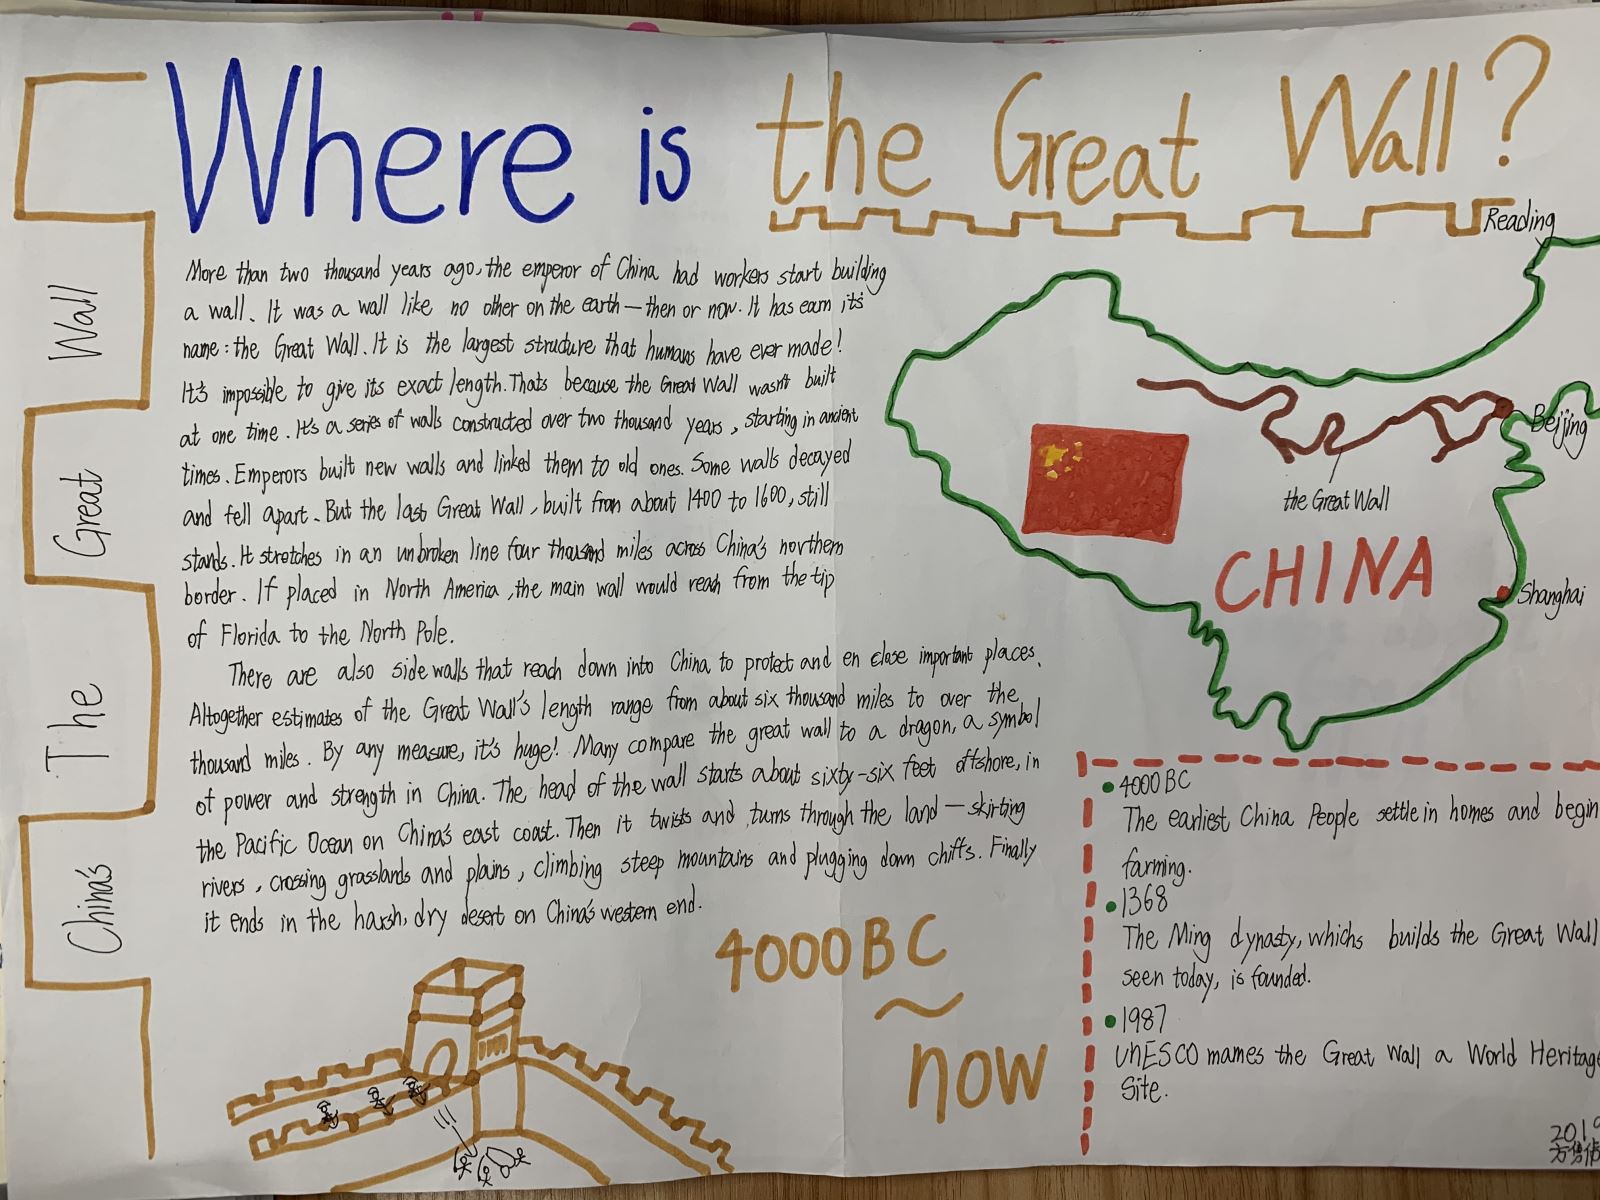 Where is the Great Wall?
Reading
China's The Great Wall
More than two thousand years ago, the emperor of China had workers start building
a wall. It was a wall like no other on the earth — then or now. It has earn it's
name: the Great Wall. It is the largest structure that humans have ever made!
It's impossible to give its exact length. Thats because the Great Wall wasn't built
at one time. It's a series of walls constructed over two thousand years, starting in ancient
times. Emperors built new walls and linked them to old ones. Some walls decayed
and fell apart. But the last Great Wall, built from about 1400 to 1600, still
stands. It stretches in an unbroken line four thousand miles across China's northern
border. If placed in North America, the main wall would reach from the tip
of Florida to the North Pole.
There are also side walls that reach down into China to protect and en close important places.
Altogether estimates of the Great Wall's length range from about six thousand miles to over the
thousand miles. By any measure, it's huge! Many compare the great wall to a dragon, a symbol
of power and strength in China. The head of the wall starts about sixty-six feet offshore, in
the Pacific Ocean on China's east coast. Then it twists and turns through the land — skirting
rivers, crossing grasslands and plains, climbing steep mountains and plugging down chiffs. Finally
it ends in the harsh, dry desert on China's western end.
Beijing
the Great Wall
CHINA
Shanghai
4000BC
~
now
4000BC
The earliest China People settle in homes and begin
farming.
1368
The Ming dynasty, whichs builds the Great Wall
seen today, is founded.
1987
UnESCO mames the Great Wall a World Heritage
Site.
2019